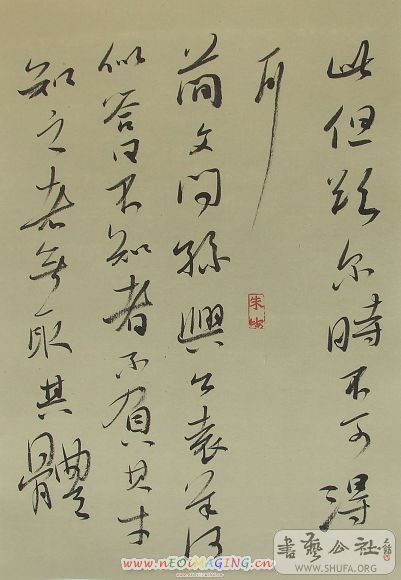 此但欲尔時不可得
耳
簡文問孫興公袁羊何
似答曰不知者不負其才
知之者無取其體
書藝公社
WWW.SHUFA.ORG
www.nEOiMAGING.cn